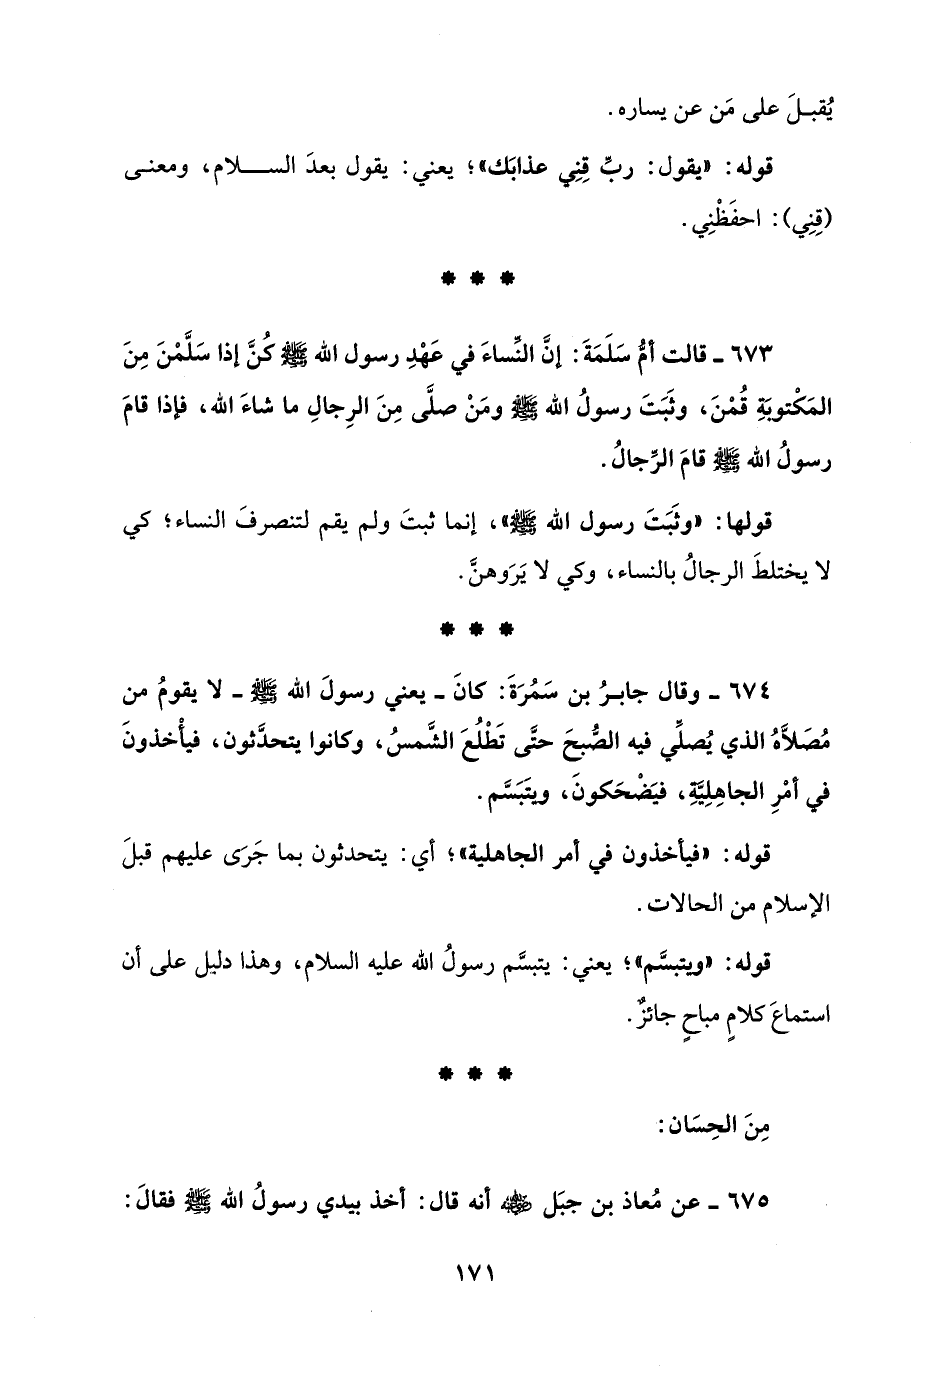 يُقبـلَ على مَن عن يساره.
قوله: «يقول: ربِّ قِنِي عذابَك»؛ يعني: يقول بعدَ الســـلام، ومعنـى
(قِنِي): احفَظْنِي.
* * *
٦٧٣ ـ قالت أمُّ سَلَمَةَ: إنَّ النِّساءَ في عَهْدِ رسول الله ﷺ كُنَّ إذا سَلَّمْنَ مِنَ
المَكْتوبَةِ قُمْنَ، وثَبَتَ رسولُ الله ﷺ ومَنْ صلَّى مِنَ الرِجالِ ما شاءَ الله، فإذا قامَ
رسولُ الله ﷺ قامَ الرِّجالُ.
قولها: «وثَبَتَ رسول الله ﷺ»، إنما ثبتَ ولم يقم لتنصرفَ النساء؛ كي
لا يختلطَ الرجالُ بالنساء، وكي لا يَرَوهنَّ.
* * *
٦٧٤ ـ وقال جابـرُ بن سَمُرَةَ: كانَ ـ يعني رسولَ الله ﷺ ـ لا يقومُ من
مُصَلاَّهُ الذي يُصلِّي فيه الصُّبحَ حتَّى تَطْلُعَ الشَّمسُ، وكانوا يتحدَّثون، فيأْخذونَ
في أمْرِ الجاهِلِيَّةِ، فيَضْحَكونَ، ويتَبَسَّم.
قوله: «فيأخذون في أمر الجاهلية»؛ أي: يتحدثون بما جَرَى عليهم قبلَ
الإسلام من الحالات.
قوله: «ويتبسَّم»؛ يعني: يتبسَّم رسولُ الله عليه السلام، وهذا دليل على أن
استماعَ كلامٍ مباحٍ جائزٌ.
* * *
مِنَ الحِسَان:
٦٧٥ ـ عن مُعاذ بن جبَل ﵁ أنه قال: أخذ بيدي رسولُ الله ﷺ فقالَ:
١٧١